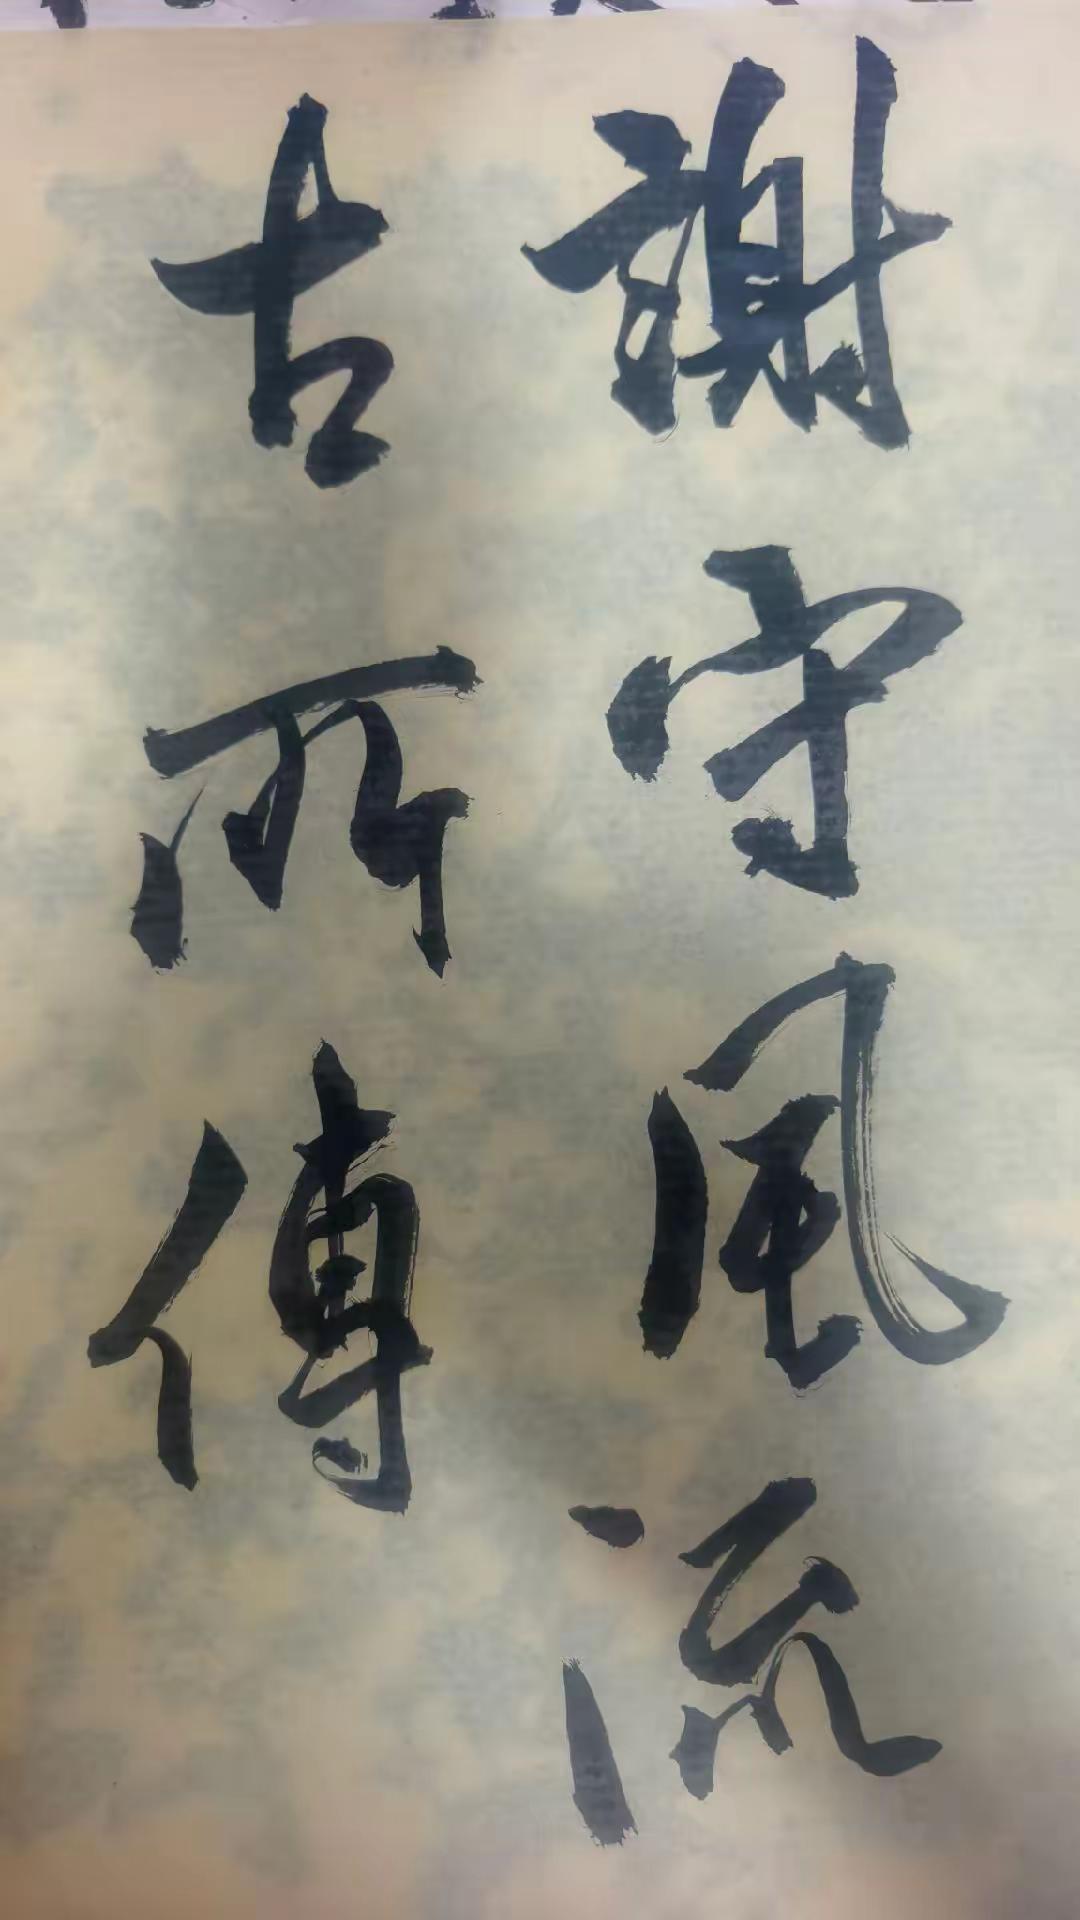 謝守風流
古所傳